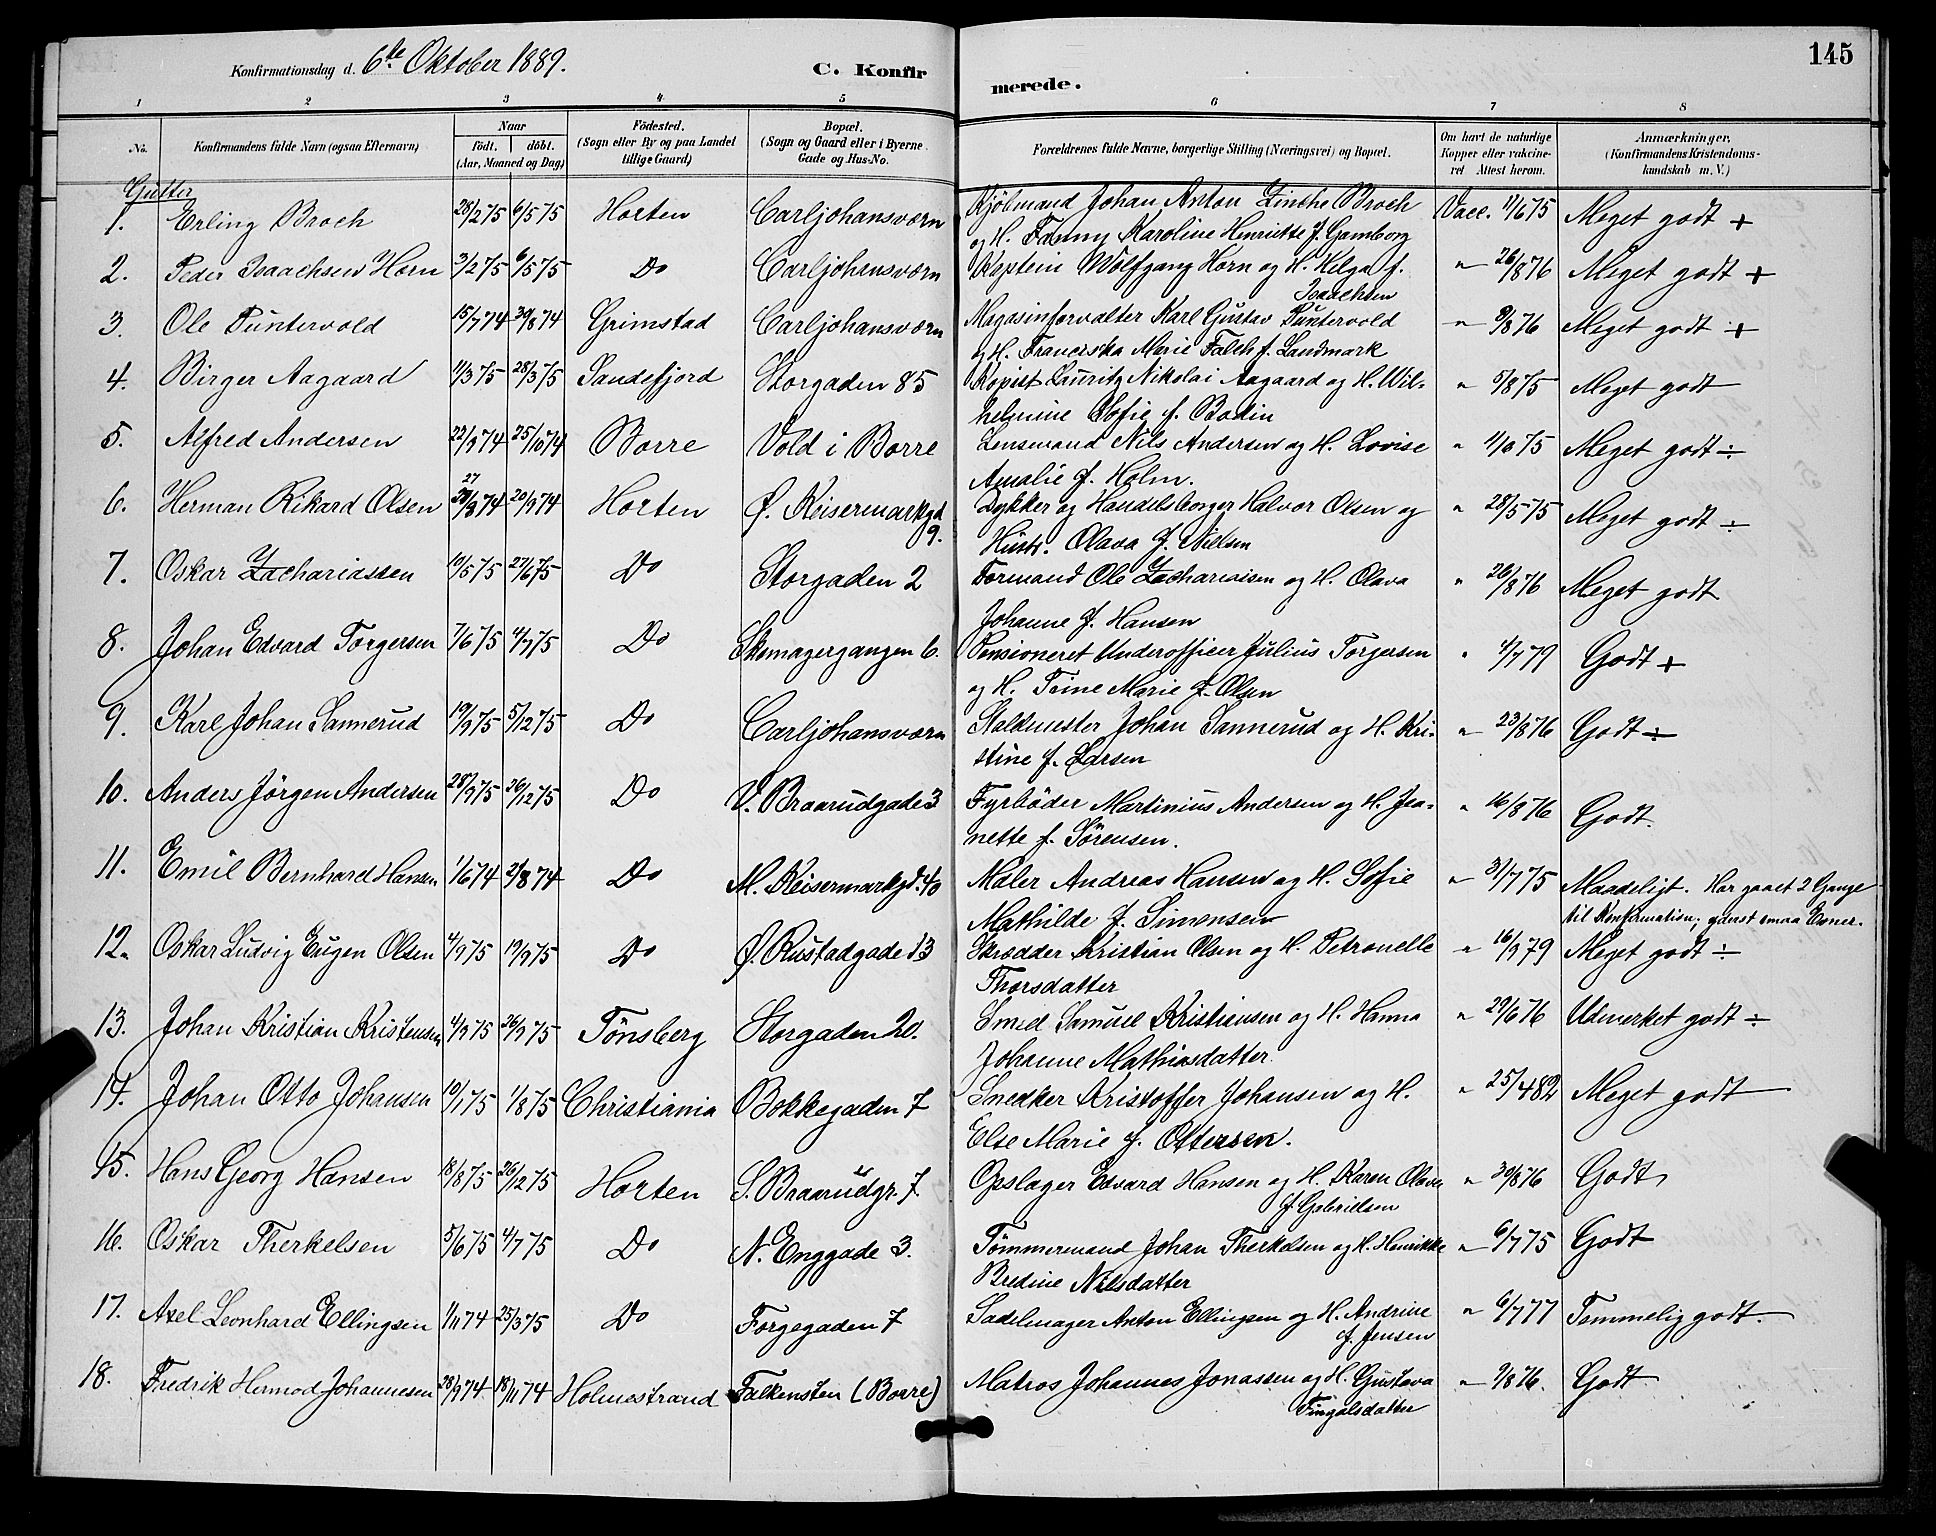 Konfirmationsdag d. 6te Oktober 1889.
C. Konfirmerede.
145
1 2 3 4 5 6 7 8
No.
Konfirmandens fulde Navn (ogsaa Efternavn)
Naar
födt. döbt.
(Aar, Maaned og Dag)
Födested.
(Sogn eller By og paa Landet tillige Gaard)
Bopæl.
(Sogn og Gaard eller i Byerne Gade og Hus-No.
Forældrenes fulde Navne, borgerlige Stilling (Næringsvei) og Bopæl.
Om havt de naturlige Kopper eller vakcineret Attest herom.
Anmærkninger,
(Konfirmandens Kristendomskundskab m. V.)
Gutter
1. Erling Broch 28/2 75 6/5 75 Horten Carljohansværn Kjöbmand Johan Anton Zinthe Broch Vacc. 11/6 75 Meget godt +
og H. Fanny Karoline Henriette f. Gamborg
2. Peder Isaachsen Horn 3/2 75 6/5 75 Do Carljohansværn Kaptein Wolfgang Horn og H. Helga f. " 26/8 76 Meget godt +
Isaachsen
3. Ole Puntervold 15/7 74 30/8 74 Grimstad Carljohansværn Magasinforvalter Karl Gustav Puntervold " 9/8 76 Meget godt +
og H. Franciska Marie Falch f. Landmark
4. Birger Aagaard 11/3 75 28/3 75 Sandefjord Storgaden 85 Kopist Lauritz Nikolai Aagaard og H. Wil- " 5/8 75 Meget godt
helmine Sofie f. Bodin
5. Alfred Andersen 22/9 74 25/10 74 Borre Vold i Borre Lensmand Nils Andersen og H. Lovise " 75 Meget godt ÷
Amalie f. Holm.
6. Herman Rikard Olsen 27/8 74 20/9 74 Horten Ø. Keisermarkgd 9. Dykker og Handelsborger Halvor Olsen og " 28/5 75 Meget godt ÷
Hustr. Olava f. Nielsen
7. Oskar Zachariassen 10/5 75 27/6 75 Do Storgaden 2 Formand Ole Zachariasen og H. Olava " 26/8 76 Meget godt
Johanne f. Hansen
8. Johan Edvard Torgersen 7/6 75 4/7 75 Do Skomagergangen 6. Pensioneret Underofficer Julius Torgersen " 4/7 79 Godt +
og H. Trine Marie f. Olsen
9. Karl Johan Sannerud 19/9 75 5/12 75 Do Carljohansværn Staldmester Johan Sannerud og H. Kri- " 23/8 76 Godt ÷
stine f. Larsen
10. Anders Jörgen Andersen 28/9 75 26/12 75 Do V. Braarudgade 3 Fyrböder Martinius Andersen og H. Jea- " 16/8 76 Godt.
nette f. Sörensen.
11. Emil Bernhard Hansen 1/6 74 2/8 74 Do M. Keisermarkgd. 40 Maler Andreas Hansen og H. Sofie " 31/7 75 Maadeligt. Har gaaet 2 Gange
Mathilde f. Simensen til Konfirmation; yderst smaa Evner.
12. Oskar Ludvig Eugen Olsen 4/9 75 19/9 75 Do Ø. Rustadgade 13 Skrædder Kristian Olsen og H. Petronelle " 16/9 79 Meget godt ÷
Thorsdatter
13. Johan Kristian Kristensen 4/9 75 26/9 75 Tönsberg Storgaden 20. Smed Samuel Kristiansen og H. Hanna " 29/6 76 Udmerket godt ÷
Johanne Mathiasdatter.
14. Johan Otto Johansen 10/1 75 1/8 75 Christiania Bokkegaden 7 Snedker Kristoffer Johansen og H. " 25/4 82 Meget godt
Else Marie f. Ottersen.
15. Hans Georg Hansen 18/8 75 26/12 75 Horten S. Braarudgr. 7 Opslager Edvard Hansen og H. Karen Olava " 30/8 76 Godt
f. Gabrielsen
16. Oskar Therkelsen 5/6 75 4/7 75 Do N. Enggade 3. Tömmermand Johan Therkelsen og H. Henrikke " 6/7 75 Godt
Bredine Nilsdatter
17. Axel Leonhard Ellingsen 1/11 74 25/3 75 Do Torgegaden 7 Sadelmager Anton Ellingsen og H. Andrine " 6/7 77 Temmelig godt.
f. Jensen
18. Fredrik Hermod Johannesen 28/9 74 18/11 74 Holmestrand Falkensten (Borre) Matros Johannes Jonassen og H. Gustava " 9/8 76. Godt
Fingalsdatter